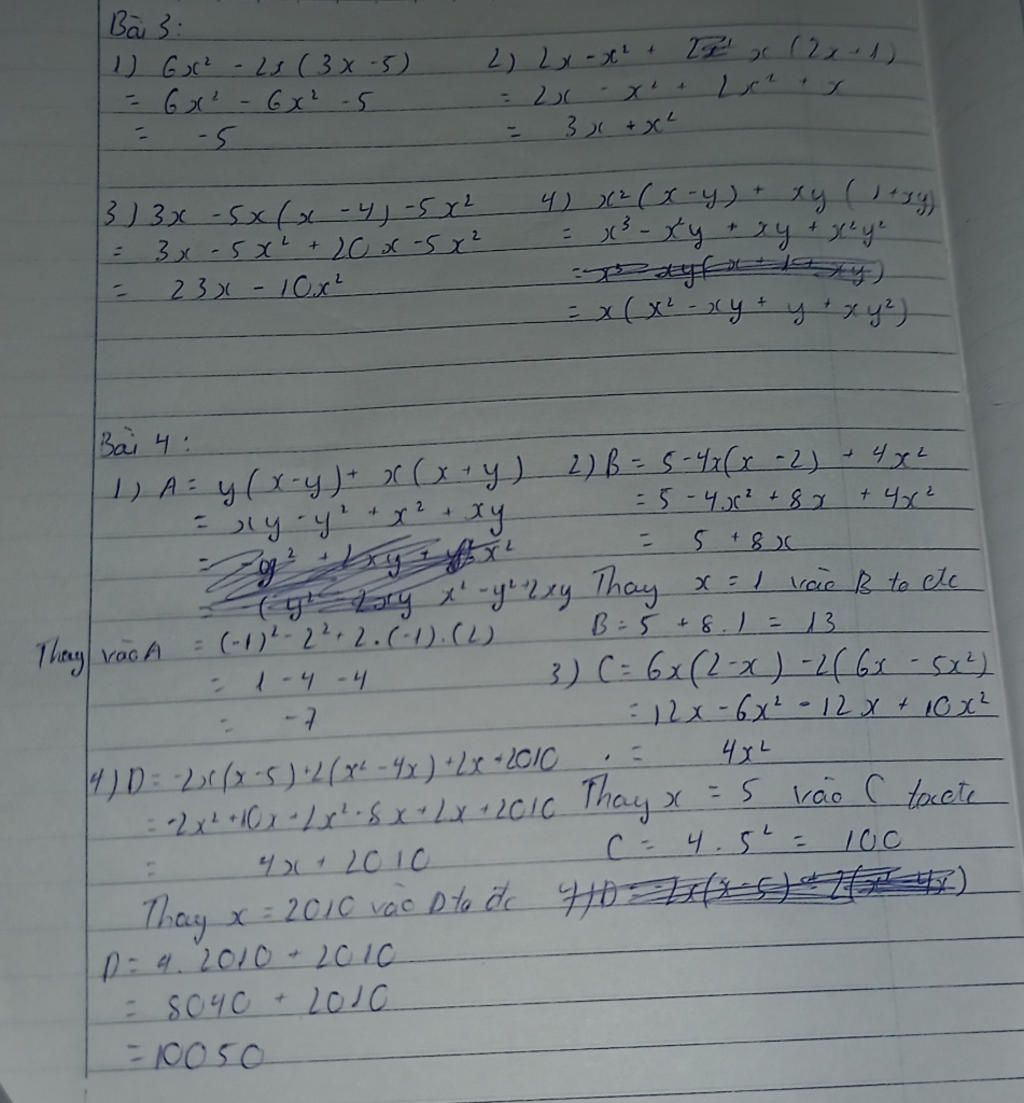 Bài 3:
1) 6x² - 2x(3x - 5)
= 6x² - 6x² - 5
= -5
2) 2x - x² + x(2x + 1)
= 2x - x² + 2x² + x
= 3x + x²
3) 3x - 5x(x - 4) - 5x²
= 3x - 5x² + 20x - 5x²
= 23x - 10x²
4) x²(x - y) + xy(1 + xy)
= x³ - x²y + xy + x²y²
= x(x² - xy + y + xy²)
Bài 4:
1) A = y(x - y) + x(x + y)
= xy - y² + x² + xy
= x² - y² + 2xy
Thay vào A = (-1)² - 2² + 2.(-1).(2)
= 1 - 4 - 4
= -7
2) B = 5 - 4x(x - 2) + 4x²
= 5 - 4x² + 8x + 4x²
= 5 + 8x
Thay x = 1 vào B ta đc
B = 5 + 8.1 = 13
3) C = 6x(2 - x) - 2(6x - 5x²)
= 12x - 6x² - 12x + 10x²
= 4x²
Thay x = 5 vào C ta đc
C = 4.5² = 100
4) D = -2x(x - 5) + 2(x² - 4x) + 2x + 2010
= -2x² + 10x + 2x² - 8x + 2x + 2010
= 4x + 2010
Thay x = 2010 vào D ta đc
D = 4.2010 + 2010
= 8040 + 2010
= 10050